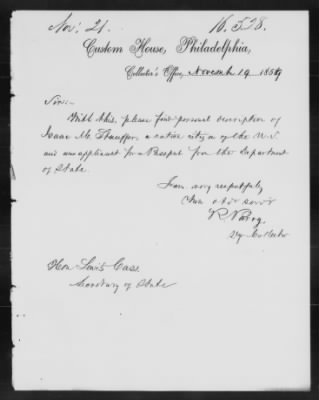 Nov: 21. 16.518.
Custom House, Philadelphia,
Collector's Office, November 19 1859
Sir:-
With this, please find personal description of
Isaac M. Stauffer, a native citizen of the U.S.
and an applicant for a Passport from the Department
of State.
I am very respectfully
Your obdt servt
Dy Collector
Hon Lewis Cass
Secretary of State